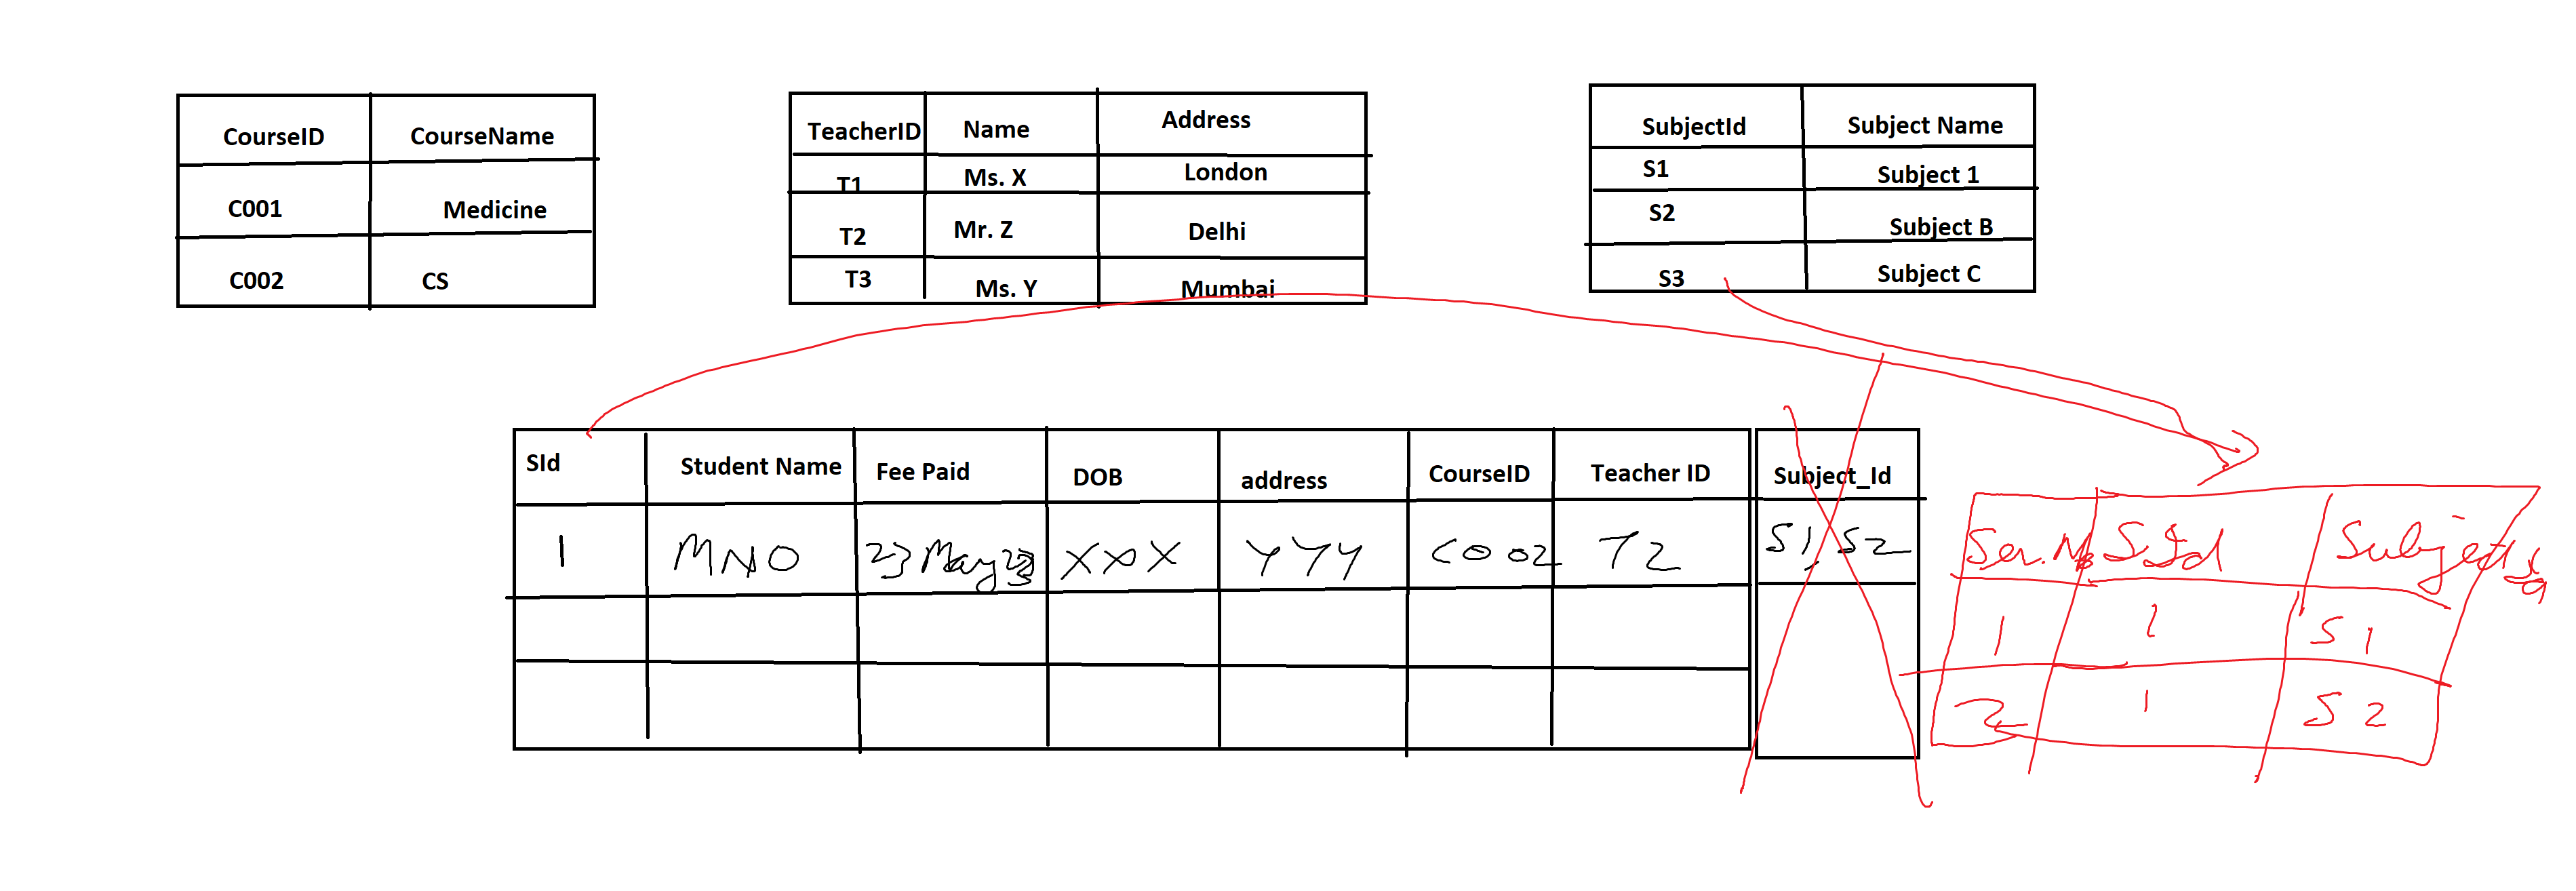 CourseID CourseName
C001 Medicine
C002 CS
TeacherID Name Address
T1 Ms. X London
T2 Mr. Z Delhi
T3 Ms. Y Mumbai
SubjectId Subject Name
S1 Subject 1
S2 Subject B
S3 Subject C
SId Student Name Fee Paid DOB address CourseID Teacher ID Subject_Id
1 MNO 23 May 23 XXX YYY C002 T2 S1, S2
Ser. No SId
1 1 S1
2 1 S2